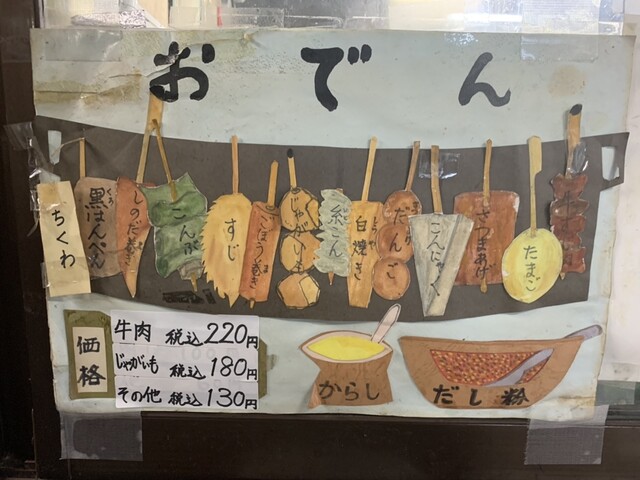 おでん
ちくわ
黒はんぺん
くろ
しのだ巻き
こんぶ
すじ
ごぼう巻き
じゃがいも
糸こん
白焼き
だんご
こんにゃく
さつまあげ
たまご
価格
牛肉 税込220円
じゃがいも 税込180円
その他 税込130円
からし
だし粉